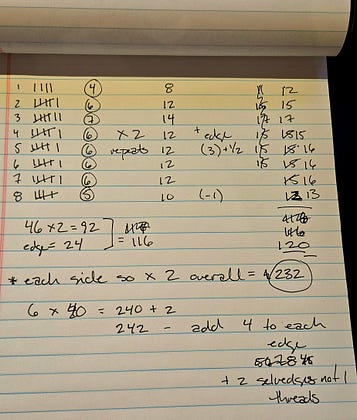 1 |||| 4 8 12
2 6 12 15 15
3 7 14 17 17
4 6 × 2 12 + edge 15 15
5 6 repeats 12 (3) + 1/2 15 16
6 6 12 15 16
7 6 12 15 16
8 5 10 (-1) 13
46 × 2 = 92
edge = 24 = 116
120
* each side so × 2 overall = 232
6 × 40 = 240 + 2
242 - add 4 to each
edge
+ 2 selvedges not 1
threads